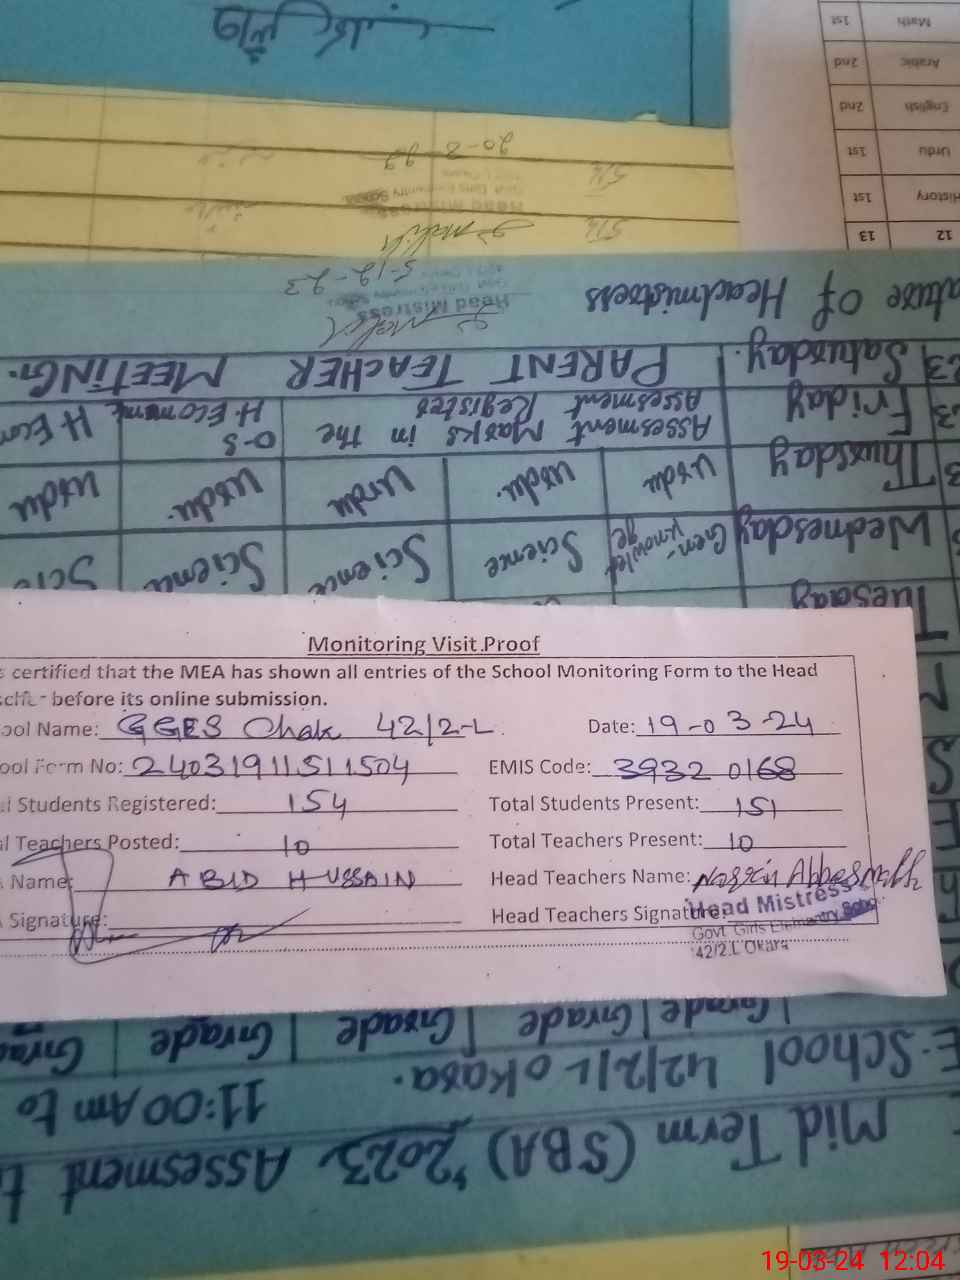 Math 1st
Arabic 2nd
English 2nd
Urdu 1st
History 1st
12 13
20-8-22
5-12-23
Head Mistress
Of Headmistress
Saturday. PARENT TEACHER MEETING.
Friday Assesment Marks in the Assesment Register O-S H-Economic H Econ
Thursday Urdu Urdu. Urdu Urdu. Urdu
Wednesday Gen-knowledge Science Science Science Scie
Tuesday
Monitoring Visit Proof
certified that the MEA has shown all entries of the School Monitoring Form to the Head
before its online submission.
ool Name: GGES Chak 42/2-L Date: 19-03-24
ool Form No: 24031911511504 EMIS Code: 39320168
Students Registered: 154 Total Students Present: 151
l Teachers Posted: 10 Total Teachers Present: 10
Name: ABID HUSSAIN Head Teachers Name:
Signature: Head Teachers Signature:
Head Mistress
Govt. Girls Elementry School
42/2.L Okara
Grade Grade Grade Grade Grade
E.School 42/2/L okara. 11:00 Am to
Mid Term (SBA) 2023 Assesment
19-03-24 12:04